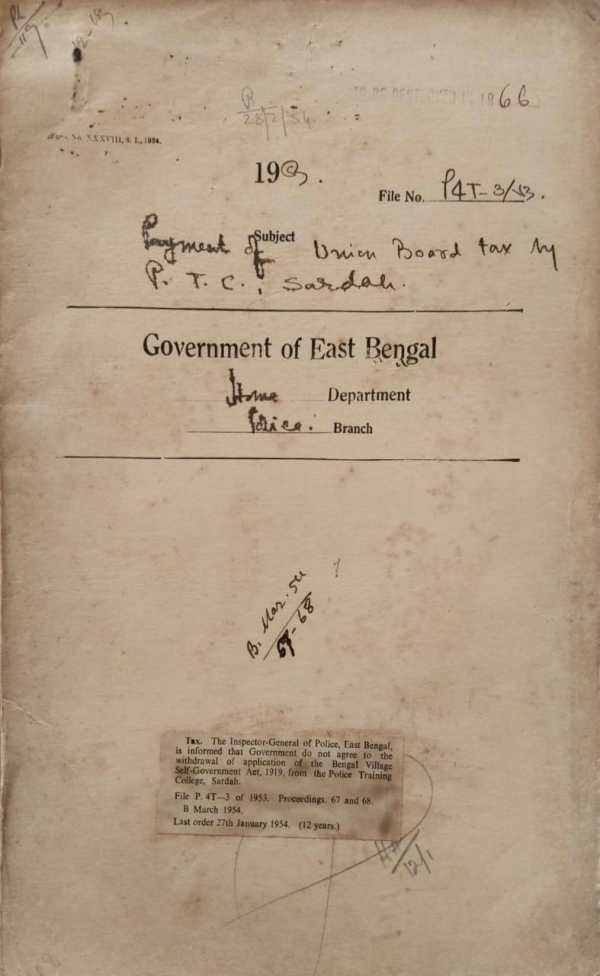 R
28/2/54
TO BE DESTROYED IN 1966
Form No. XXXVIII, S. I., 1924.
1953.
File No. P4T-3/53.
Subject
Payment of Union Board tax by
P. T. C., Sardah.
Government of East Bengal
Home Department
Police. Branch
B. Mar. 54
67-68
Tax. The Inspector-General of Police, East Bengal,
is informed that Government do not agree to the
withdrawal of application of the Bengal Village
Self-Government Act, 1919, from the Police Training
College, Sardah.
File P. 4T—3 of 1953. Proceedings. 67 and 68.
B March 1954.
Last order 27th January 1954. (12 years.)
12/1